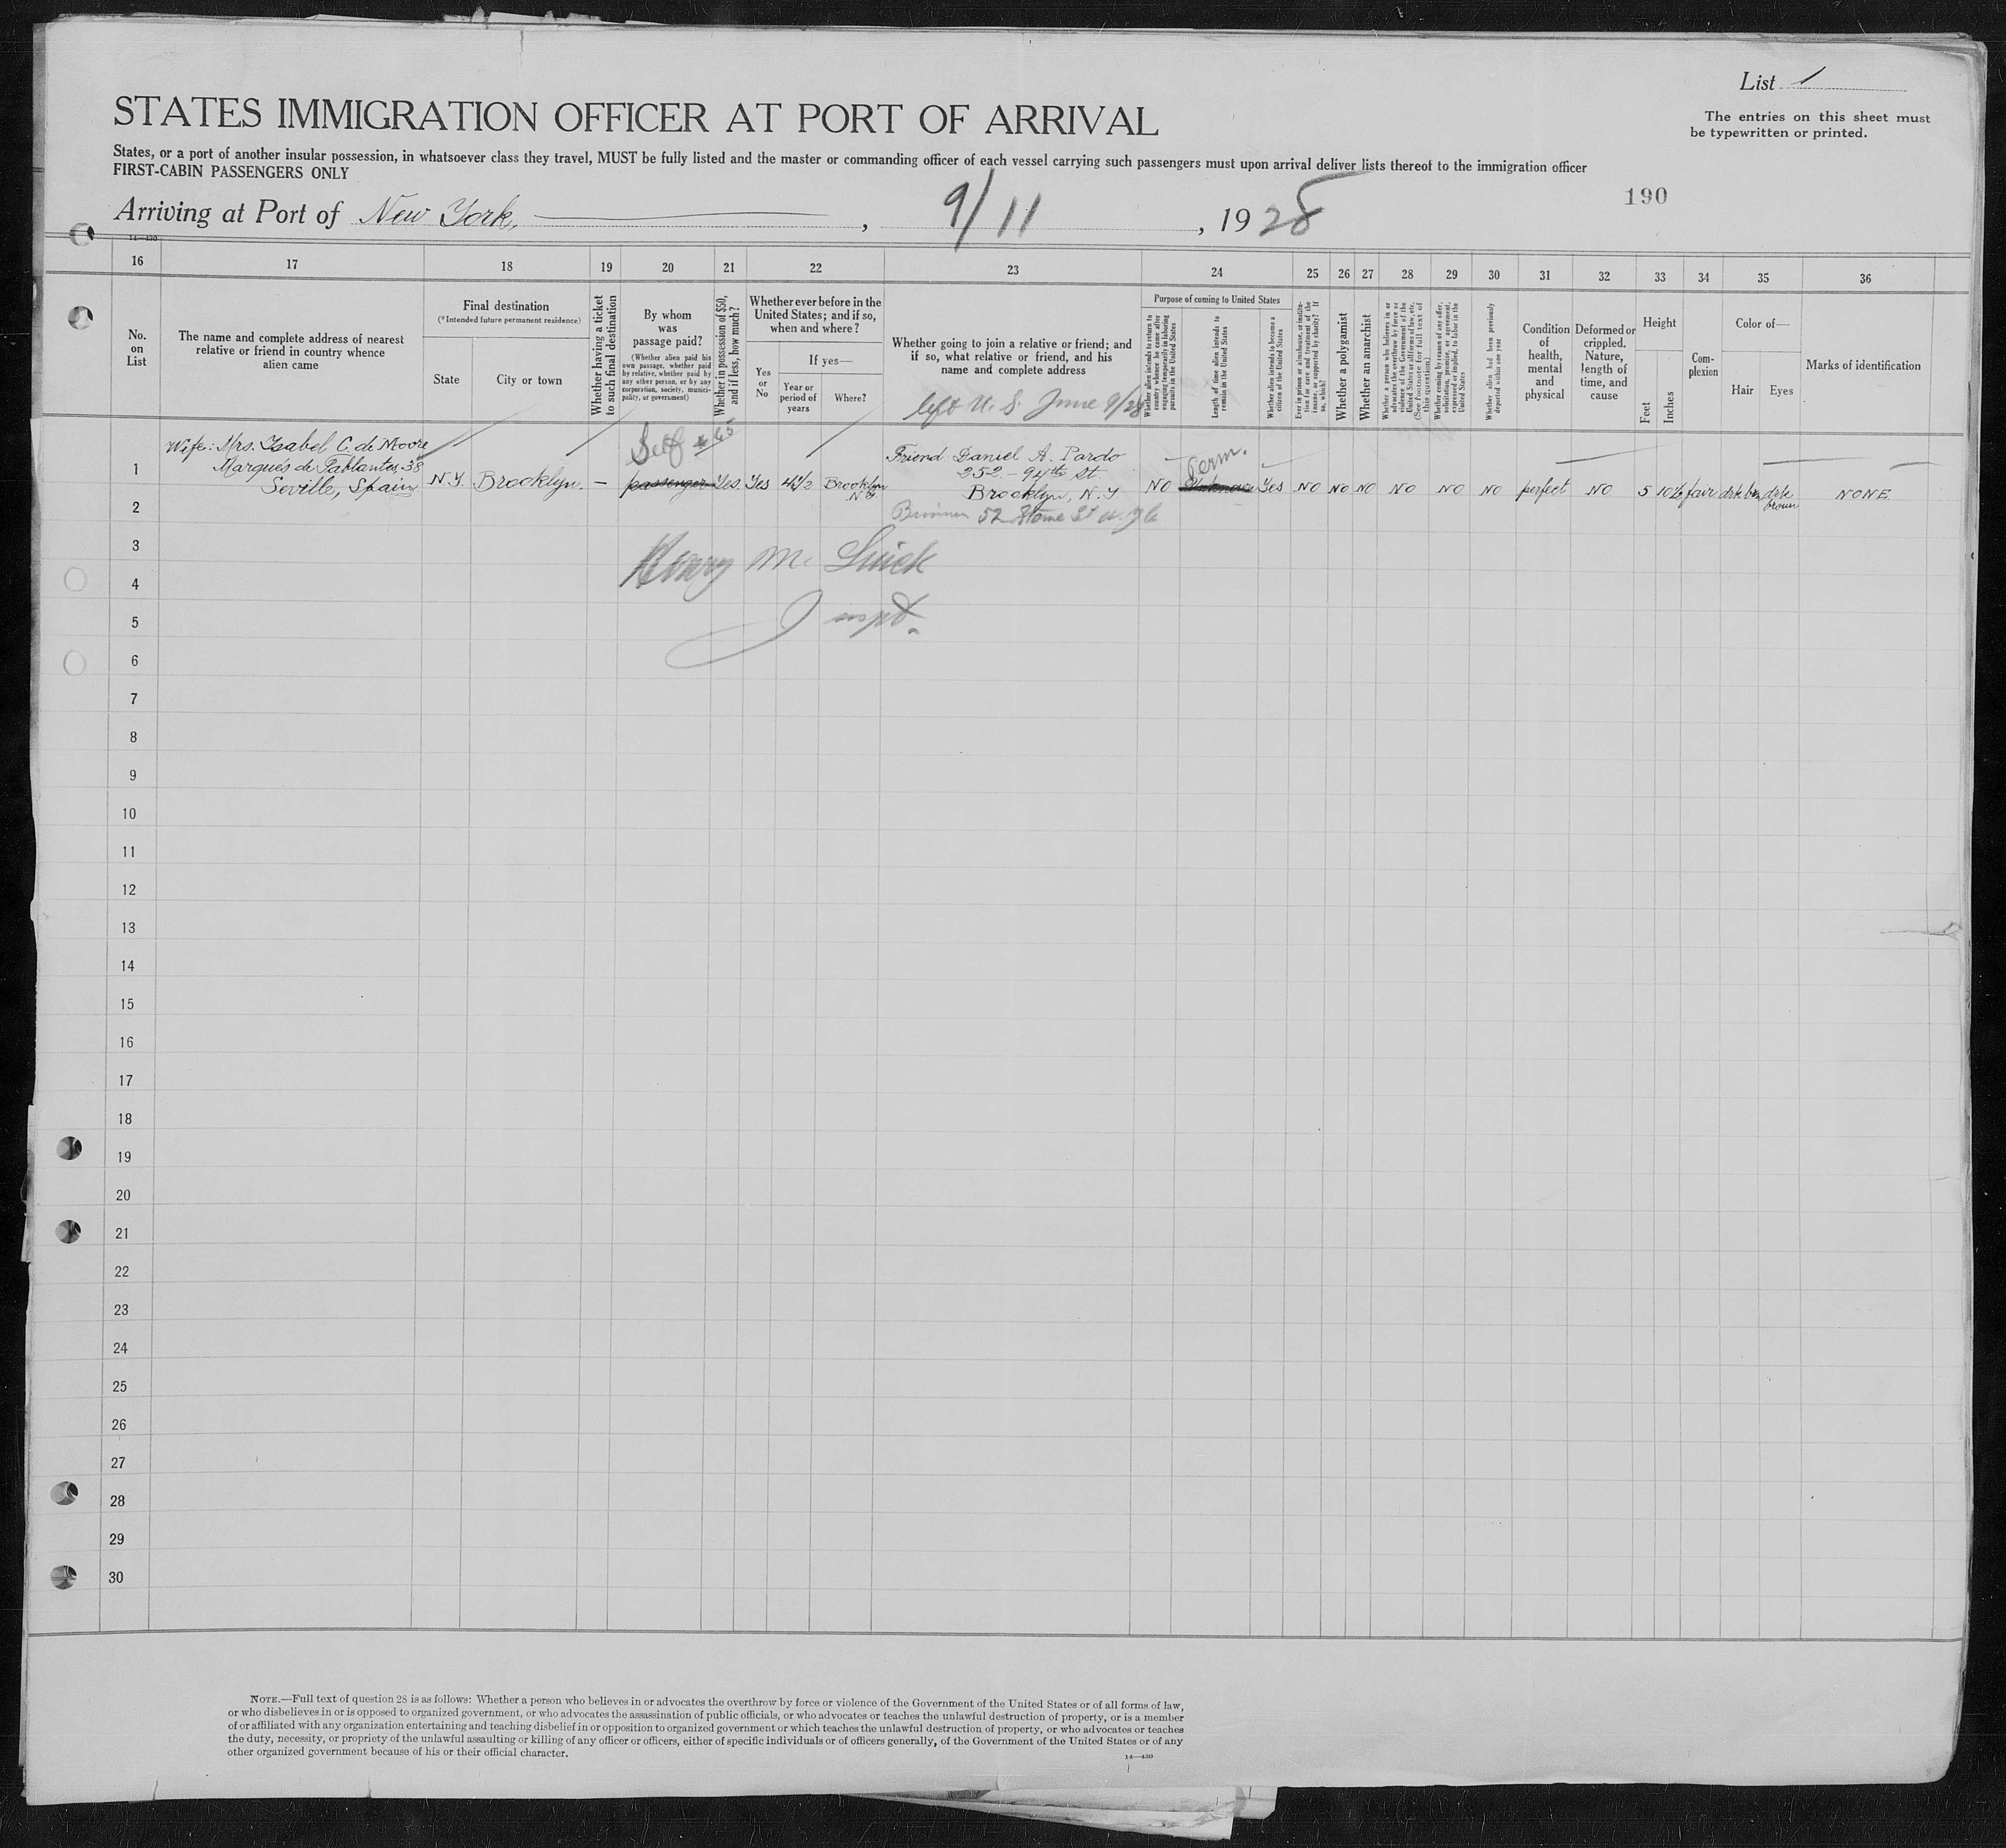 List 1
STATES IMMIGRATION OFFICER AT PORT OF ARRIVAL
The entries on this sheet must
be typewritten or printed.
States, or a port of another insular possession, in whatsoever class they travel, MUST be fully listed and the master or commanding officer of each vessel carrying such passengers must upon arrival deliver lists thereof to the immigration officer
FIRST-CABIN PASSENGERS ONLY
190
Arriving at Port of New York, 9/11, 1928
14—430
16 17 18 19 20 21 22 23 24 25 26 27 28 29 30 31 32 33 34 35 36
No.
on
List
The name and complete address of nearest
relative or friend in country whence
alien came
Final destination
(*Intended future permanent residence)
State
City or town
Whether having a ticket
to such final destination
By whom
was
passage paid?
(Whether alien paid his
own passage, whether paid
by relative, whether paid by
any other person, or by any
corporation, society, munici-
pality, or government)
Whether in possession of $50,
and if less, how much?
Whether ever before in the
United States; and if so,
when and where?
Yes
or
No
If yes—
Year or
period of
years
Where?
Whether going to join a relative or friend; and
if so, what relative or friend, and his
name and complete address
left U. S. June 9/28
Purpose of coming to United States
Whether alien intends to return to
country whence he came after
engaging temporarily in laboring
pursuits in the United States
Length of time alien intends to
remain in the United States
Whether alien intends to become a
citizen of the United States
Ever in prison or almshouse, or institu-
tion for care and treatment of the
insane, or supported by charity? If
so, which?
Whether a polygamist
Whether an anarchist
Whether a person who believes in or
advocates the overthrow by force or
violence of the Government of the
United States or all forms of law, etc.
(See footnote for full text of
this question)
Whether coming by reason of any offer,
solicitation, promise, or agreement,
expressed or implied, to labor in the
United States
Whether alien had been previously
deported within one year
Condition
of
health,
mental
and
physical
Deformed or
crippled.
Nature,
length of
time, and
cause
Height
Feet
Inches
Com-
plexion
Color of—
Hair
Eyes
Marks of identification
Wife: Mrs. Isabel C. de Moore
Marqués de Pablantes, 38
Seville, Spain
1
N.Y. Brooklyn. —
Self $65
passenger Yes. Yes 4 1/2 Brooklyn
N.Y.
Friend Daniel A. Pardo
252 - 94th St.
Brooklyn, N.Y.
NO
Perm.
Unknown Yes NO NO NO NO NO NO perfect NO 5 10½ fair drk brn drk
brown
NONE
2
52 Stone St
3
Henry M.
4
5
Inspt.
6
7
8
9
10
11
12
13
14
15
16
17
18
19
20
21
22
23
24
25
26
27
28
29
30
NOTE.—Full text of question 28 is as follows: Whether a person who believes in or advocates the overthrow by force or violence of the Government of the United States or of all forms of law,
or who disbelieves in or is opposed to organized government, or who advocates the assassination of public officials, or who advocates or teaches the unlawful destruction of property, or is a member
of or affiliated with any organization entertaining and teaching disbelief in or opposition to organized government or which teaches the unlawful destruction of property, or who advocates or teaches
the duty, necessity, or propriety of the unlawful assaulting or killing of any officer or officers, either of specific individuals or of officers generally, of the Government of the United States or of any
other organized government because of his or their official character.
14—430